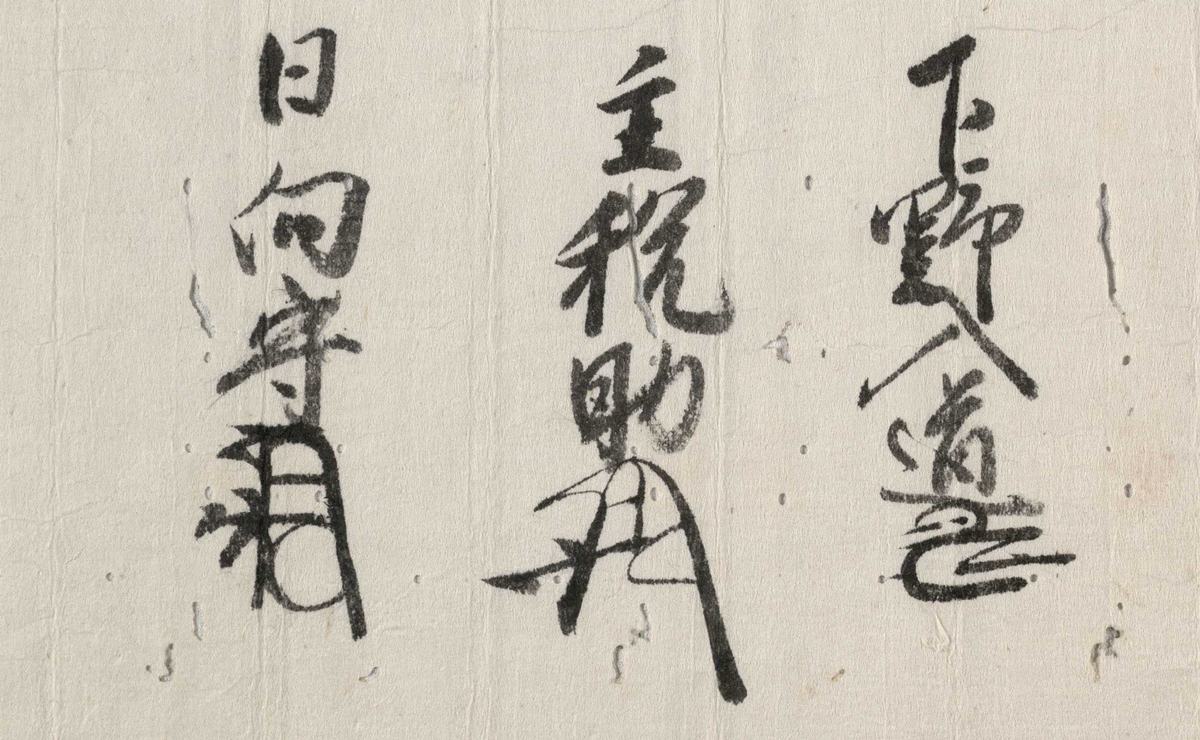 下野入道
主税助
日向守